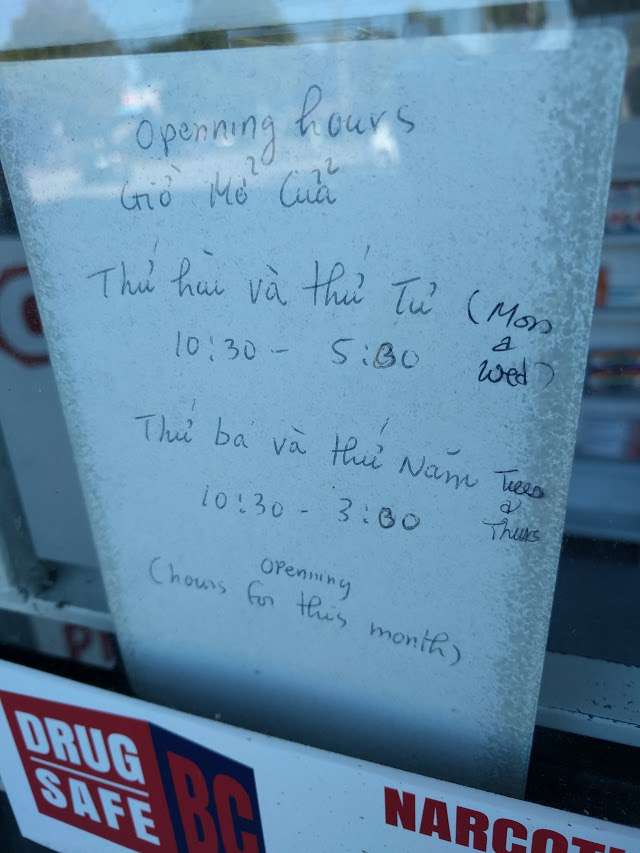 Openning hours
Giờ Mở Cửa
Thứ hai và thứ Tư (Mon & Wed)
10:30 - 5:30
Thứ ba và thứ Năm Tues & Thurs
10:30 - 3:30
(Openning hours for this month)
DRUG SAFE BC
NARCOTI